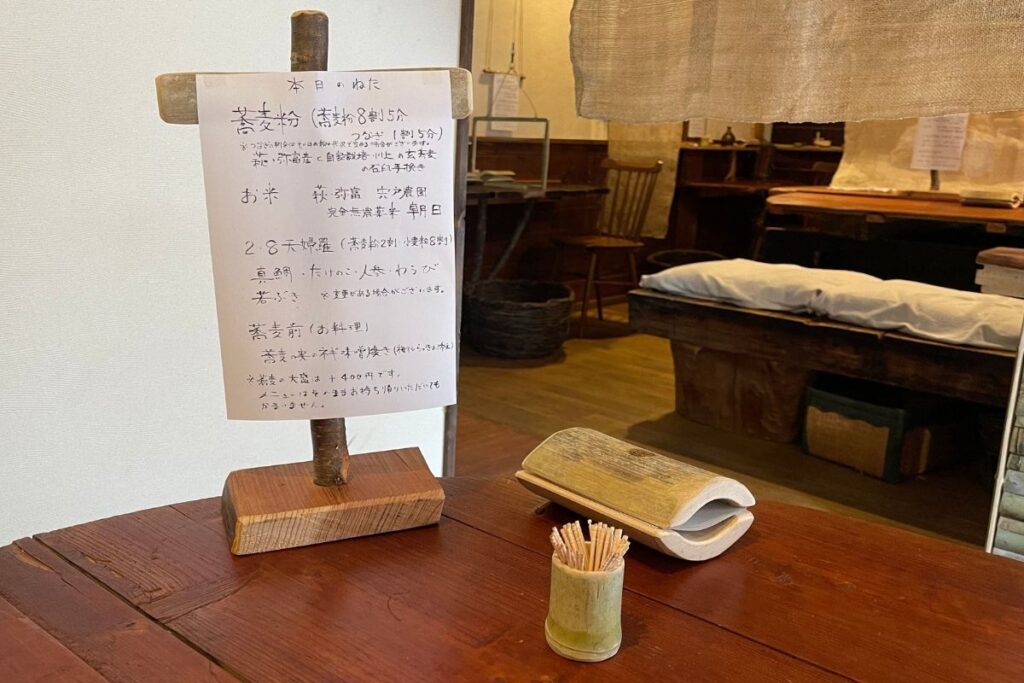 本日のねた
蕎麦粉(蕎麦粉8割5分
つなぎ1割5分)
萩・弥富産と自家栽培・川上の玄蕎麦
の石臼手挽き
お米 萩 弥富 宍戸農園
完全無農薬米 朝日
2・8天婦羅(蕎麦粉2割・小麦粉8割)
真鯛・たけのこ・人参・わらび
若ぶき ※変更がある場合がございます。
蕎麦前(お料理)
蕎麦の実のネギ味噌焼き
※蕎麦の大盛は+400円です。
メニューはそのままお持ち帰りいただいても
かまいません。